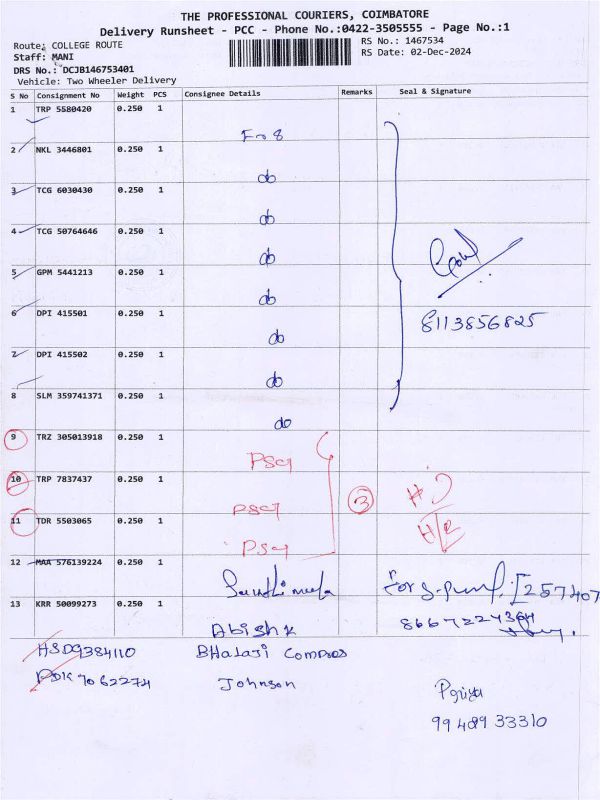 THE PROFESSIONAL COURIERS, COIMBATORE
Delivery Runsheet - PCC - Phone No.:0422-3505555 - Page No.:1
Route: COLLEGE ROUTE RS No.: 1467534
Staff: MANI RS Date: 02-Dec-2024
DRS No.: DCJB146753401
Vehicle: Two Wheeler Delivery
S No Consignment No Weight PCS Consignee Details Remarks Seal & Signature
1 TRP 5580420 0.250 1
2 NKL 3446801 0.250 1
do
3 TCG 6030430 0.250 1
do
4 TCG 50764646 0.250 1
do
5 GPM 5441213 0.250 1
do
6 DPI 415501 0.250 1
8113856825
do
7 DPI 415502 0.250 1
do
8 SLM 359741371 0.250 1
do
9 TRZ 305013918 0.250 1
PSG
10 TRP 7837437 0.250 1
3
PSG
11 TDR 5503065 0.250 1
PSG
12 MAA 576139224 0.250 1
13 KRR 50099273 0.250 1
Abishk
HSD9384110 BHalaji Compres
PDK 7062274 Johnson
Priya
99489 33310